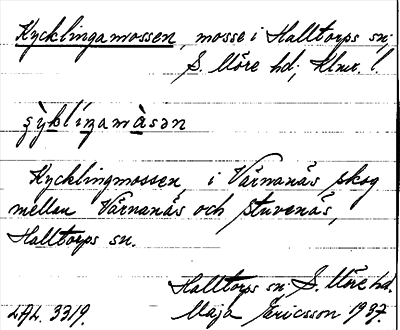 Kycklingamossen, mosse i Halltorps sn;
S. Möre hd; Klmr. l.
Kycklingmossen, i Värnanäs skog
mellan Värnanäs och Stuvenäs,
Halltorps sn.
Halltorps sn S. Möre hd.
LAL. 3319. Maja Ericsson 1937.